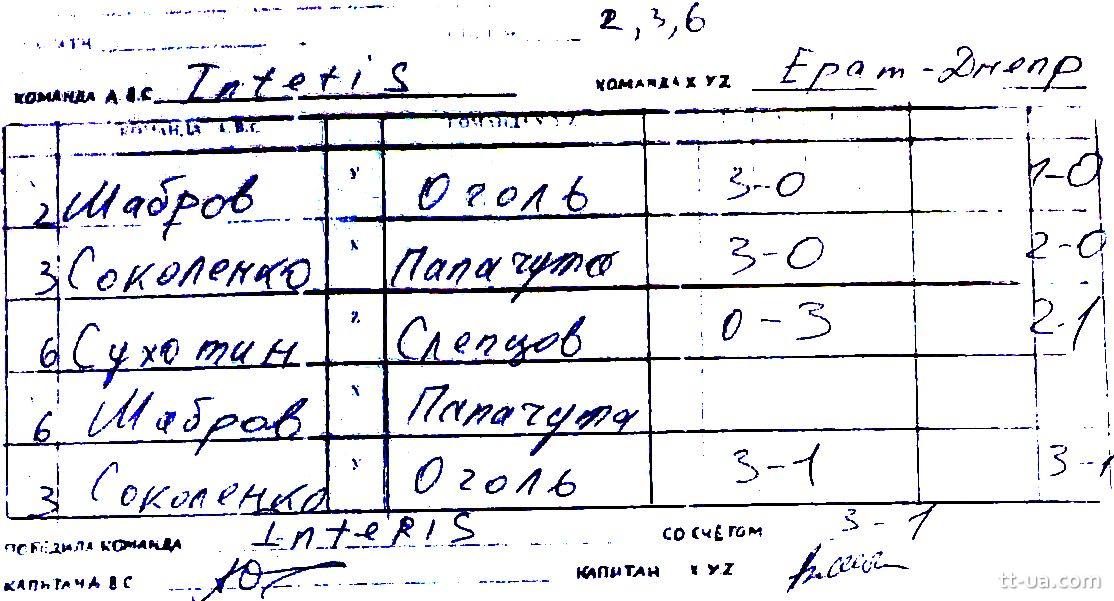 2, 3, 6
КОМАНДА А.В.С InteriS КОМАНДА X Y Z Ерат-Днепр
КОМАНДА А.В.С. КОМАНДА X Y Z
2 Шабров Y Оголь 3-0 1-0
3 Соколенко X Папачута 3-0 2-0
6 Сухотин Z Слепцов 0-3 2-1
6 Шабров X Папачута
3 Соколенко Y Оголь 3-1 3-1
ПОБЕДИЛА КОМАНДА InteRIS СО СЧЕТОМ 3-1
КАПИТАН А В С КАПИТАН X Y Z
tt-ua.com